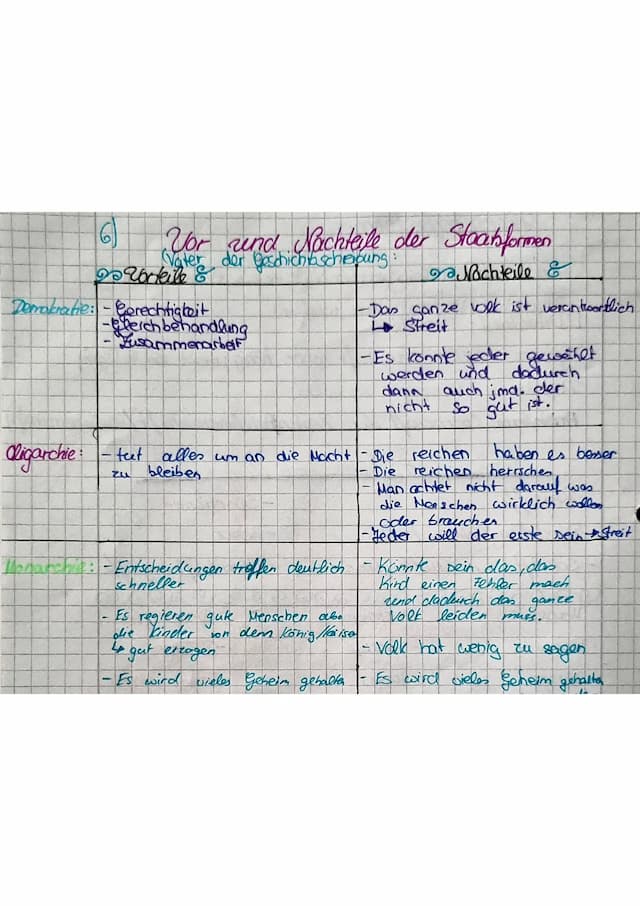 6) Vor und Nachteile der Staatsformen
Vater der Geschichtsscheibung:
Vorteile
Nachteile
Demokratie:
- Gerechtigkeit
- Gleichbehandlung
- Zusammenarbeit
- Das ganze Volk ist verantwortlich
↳ Streit
- Es könnte jeder gewählt
werden und dadurch
dann auch jmd. der
nicht so gut ist.
Oligarchie:
- tut alles um an die Macht
zu bleiben
- Die reichen haben es besser
- Die reichen herrschen
- Man achtet nicht darauf was
die Menschen wirklich wollen
oder brauchen
- Jeder will der erste sein → Streit
Monarchie:
- Entscheidungen treffen deutlich
schneller
- Es regieren gute Menschen also
die Kinder von dem König/Kaiser
↳ gut erzogen
- Es wird vieles Geheim gehalten
- Könnte sein das, das
Kind einen Fehler mach
und dadurch das ganze
Volk leiden muss.
- Volk hat wenig zu sagen
- Es wird vieles Geheim gehalten